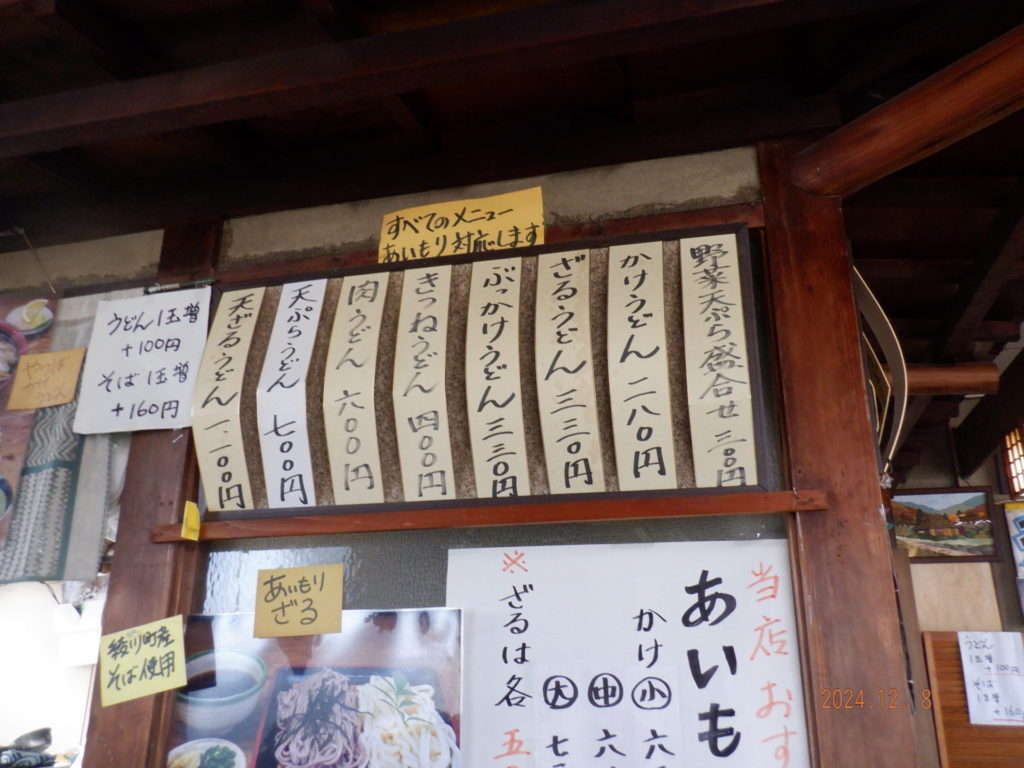 すべてのメニュー
あいもり対応します
野菜天ぷら盛合せ 三〇〇円
かけうどん 二八〇円
ざるうどん 三三〇円
ぶっかけうどん 三三〇円
きつねうどん 四〇〇円
肉うどん 六〇〇円
天ぷらうどん 七〇〇円
天ざるうどん 一、一〇〇円
うどん1玉増
+100円
そば1玉増
+160円
あいもり
ざる
綾川町産
そば使用
当店おす
あいも
かけ小 六
中 六
大 七
※ざるは各 五
うどん
1玉増
+100円
そば
1玉増
+160
2024.12.8